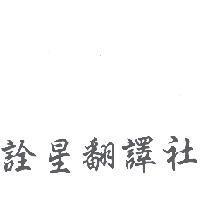 詮星翻譯社